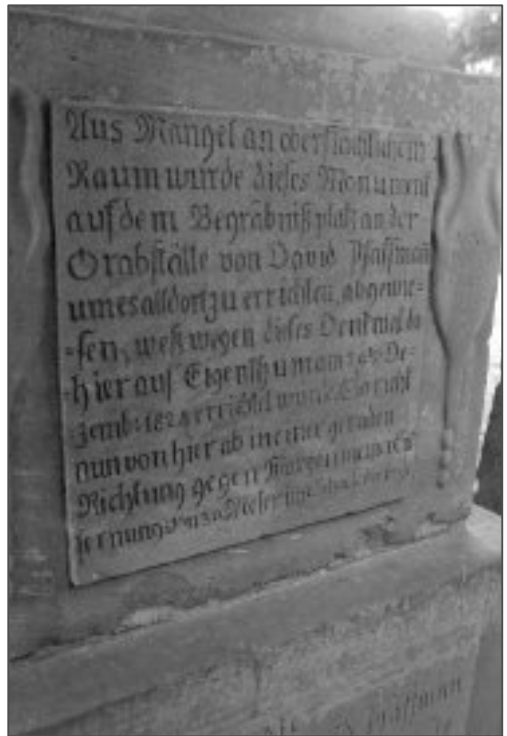 Aus Mangel an oberflächlichem
Raum wurde dieses Monument
auf dem Begräbnißplatz an der
Grabstätte von David Pfaffmañ
um es alldort zu errichten, abgewie-
-sen; weßwegen dieses Denkmal da
-hier auf Eigenthum am De-
-zemb: 1824 errichtet wurde.
nun von hier ab in einer geraden
Richtung gegen Morgen
fernung von 30 Meter
Pfaffman